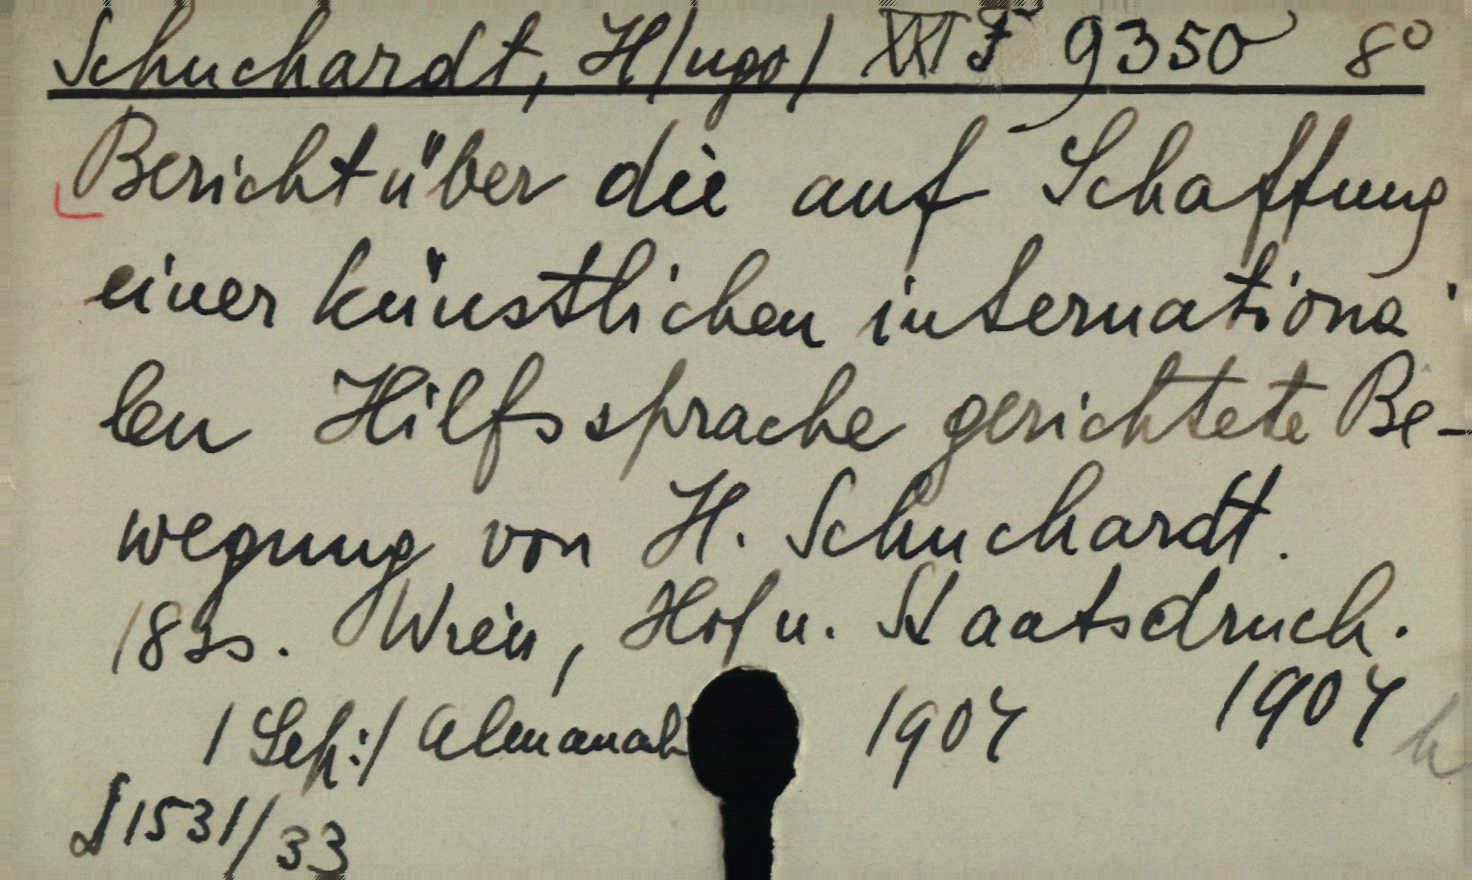 Schuchardt, H/ugo/ XXI F 9350 8°
Bericht über die auf Schaffung
einer künstlichen internationa
len Hilfssprache gerichtete Be-
wegung von H. Schuchardt.
18 s. Wien, Hof u. Staatsdruck.
1904
/Sep:/ Almanah 1904
1531/33